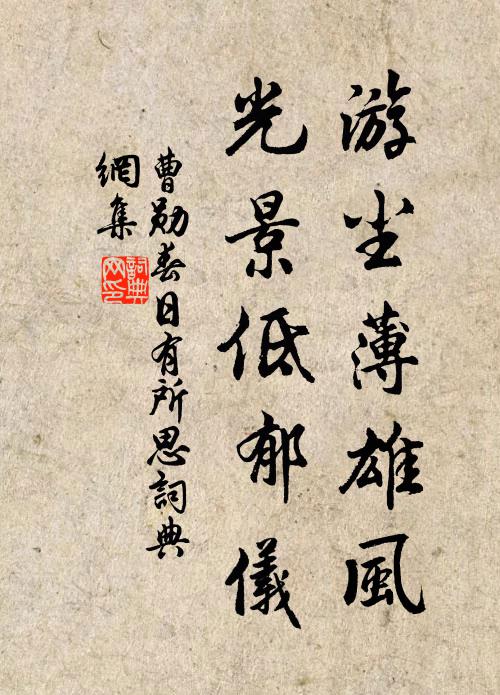 游尘薄雄風
光景低郁儀
曹勛春日有所思詞典
網集
詞典
网印